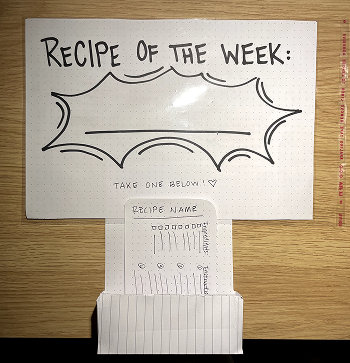 RECIPE OF THE WEEK:
TAKE ONE BELOW! ♡
RECIPE NAME
Ingredients: